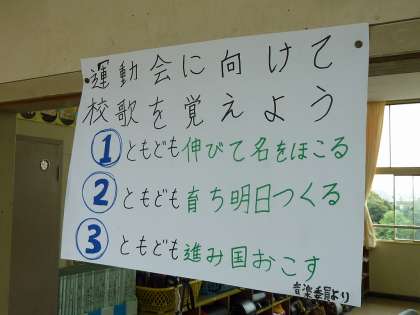 運動会に向けて
校歌を覚えよう
1 ともども伸びて名をほこる
2 ともども育ち明日つくる
3 ともども進み国おこす
音楽委員より